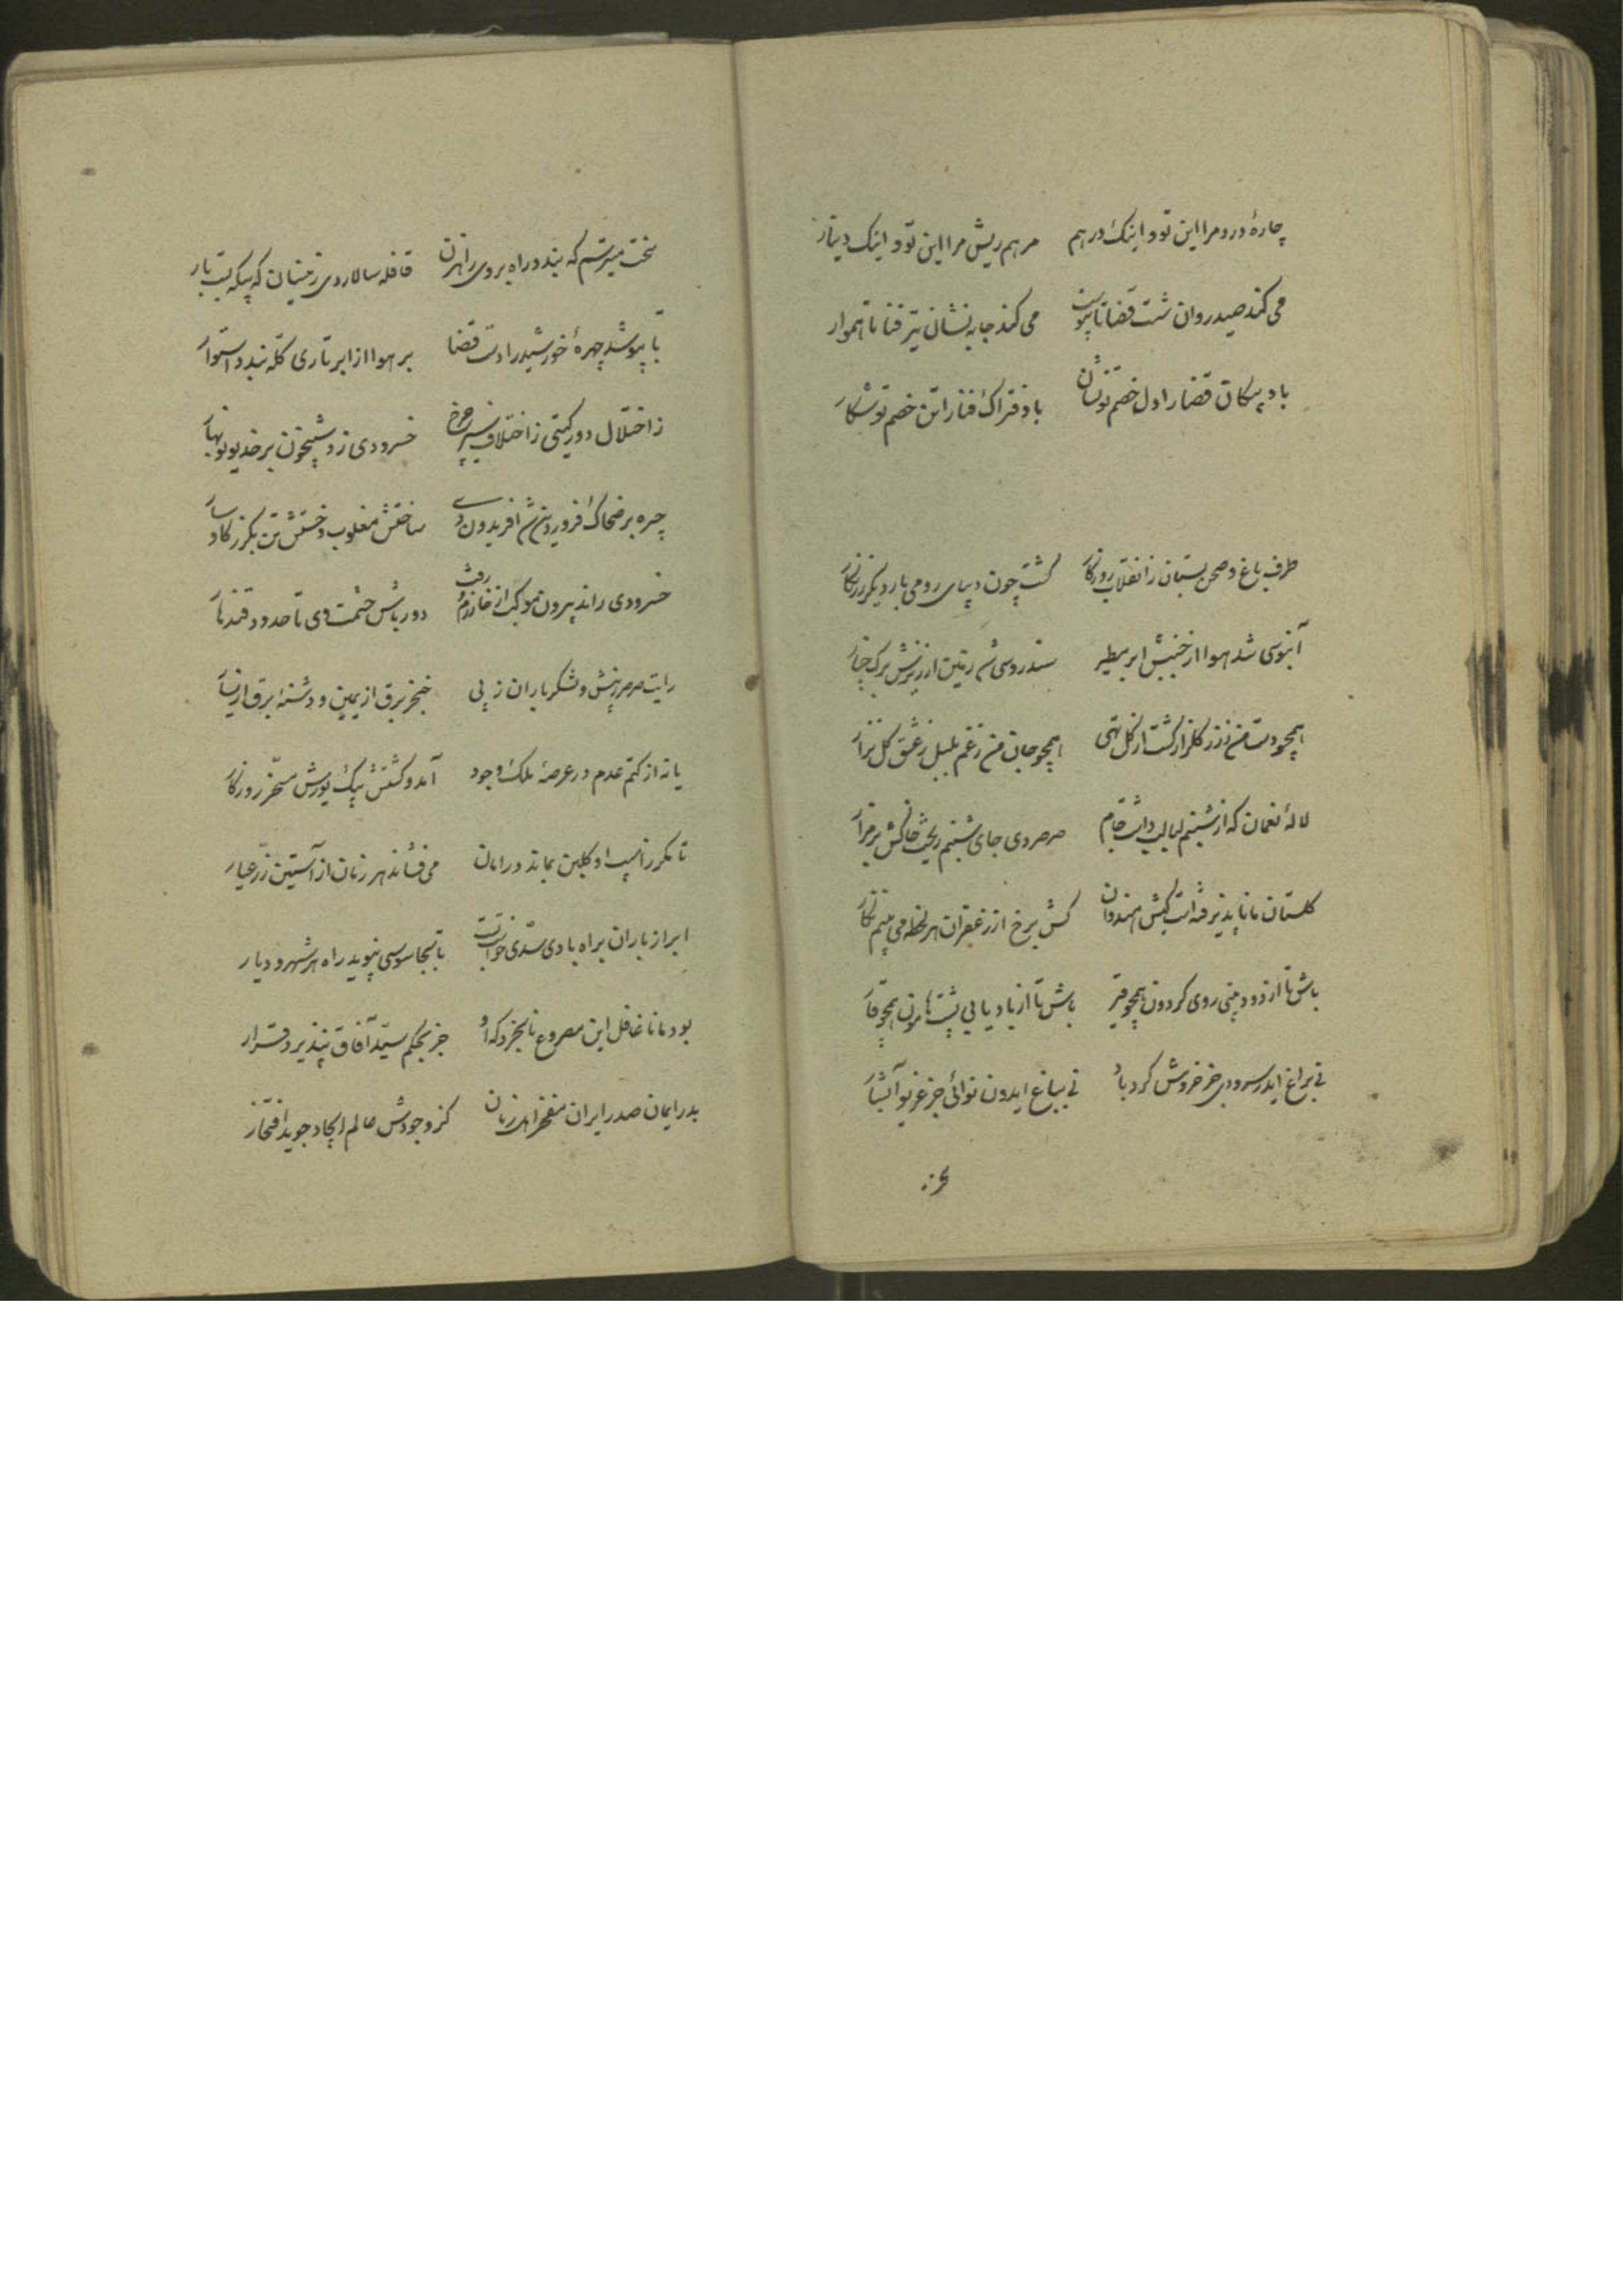 چارهٔ درد مرا این تو و اینک درهم مرهم ریش مرا این تو و اینک دینار
می کند صید روان شست قضا تا پیوست می کند جا به نشان تیر فنا تا هموار
باد پیکان قضا را دل خصم تو نشان باد فتراک فنا را تن خصم تو شکار
طرف باغ و صحن بستان ز انقلاب روزگار گشت چون دیبای رومی بار دیگر زرنگار
آبنوسی شد هوا از جنبش ابر مطیر سندروسی شد زمین از ریزش برگ چنار
همچو دست من ز زر گلزار گشت از گل تهی همچو جان من ز غم بلبل ز عشق گل نزار
لالهٔ نعمان که از شبنم لبالب داشت جام صرصر دی جای شبنم ریخت خاکش بر مزار
گلستان مانا پذیرفته است کیش هندوان کش برخ از زعفران هر لحظه می بینم نگار
باش تا از دود بینی روی گردون همچو قیر باش تا از باد یابی پشت هامون همچو قار
نی براغ ایدر سرودی جز خروش گردباد نی بباغ ایدون نوائی جز غریو آبشار
سخت میترسم که بندد راه بر وی راهزن قافله سالار دی زینسان که بیگه بست بار
تا بپوشد چهرهٔ خورشید را دست قضا بر هوا از ابر تاری کله بندد استوار
ز اختلال دور گیتی ز اختلاف سیر چرخ خسرو دی زد شبیخون بر خدیو نوبهار
چیره بر ضحاک فروردین شد افریدون دی ساختش مغلوب و خستش تن بگرز گاوسار
خسرو دی راند بیرون موکب از خوارزم و روس دور باش حشمت وی تا حدود قندهار
رایت صرصر ز پیش و لشکر باران ز پی خنجر برق از یمین و دشنهٔ برق از یسار
یا نه از کتم عدم در عرصهٔ ملک وجود آمد و گشتش بیک یورش مسخر روزگار
تا مگر ز آسیب او گلبن بماند در امان می فشاند هر زمان از آستین زر عیار
ابر از باران براه باد سدی خواست بست تا بجاسوسی نپوید راه هر شهر و دیار
بود مانا غافل این مصروع نابخرد که او جز بحکم سید آفاق نپذیرد قرار
بدر ایمان صدر ایران مفخر اهل زمان کز وجودش عالم ایجاد جوید افتخار